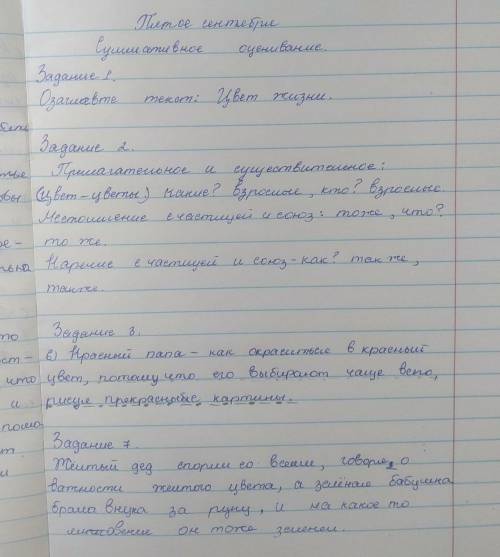 Пятое сентября
Суммативное оценивание.
Задание 1.
Озаглавте текст: Цвет жизни.
Задание 2.
Прилагательное и существительное:
(Цвет-цветы) какие? Взрослые, кто? взрослые
Местоимение с частицей и союз: тоже, что?
то же.
Наречие с частицей и союз - как? так же,
также.
Задание 3.
в) Красный папа - как окрасивые в красный
цвет, потому что его выбирают чаще всего,
рисуя прекрасные картины.
Задание 7.
Жёлтый дед спорил со всеми, говоря о
важности жёлтого цвета, а зелёная бабушка
брала внука за руку, и на какое то
мгновение он тоже зеленел.
что
и